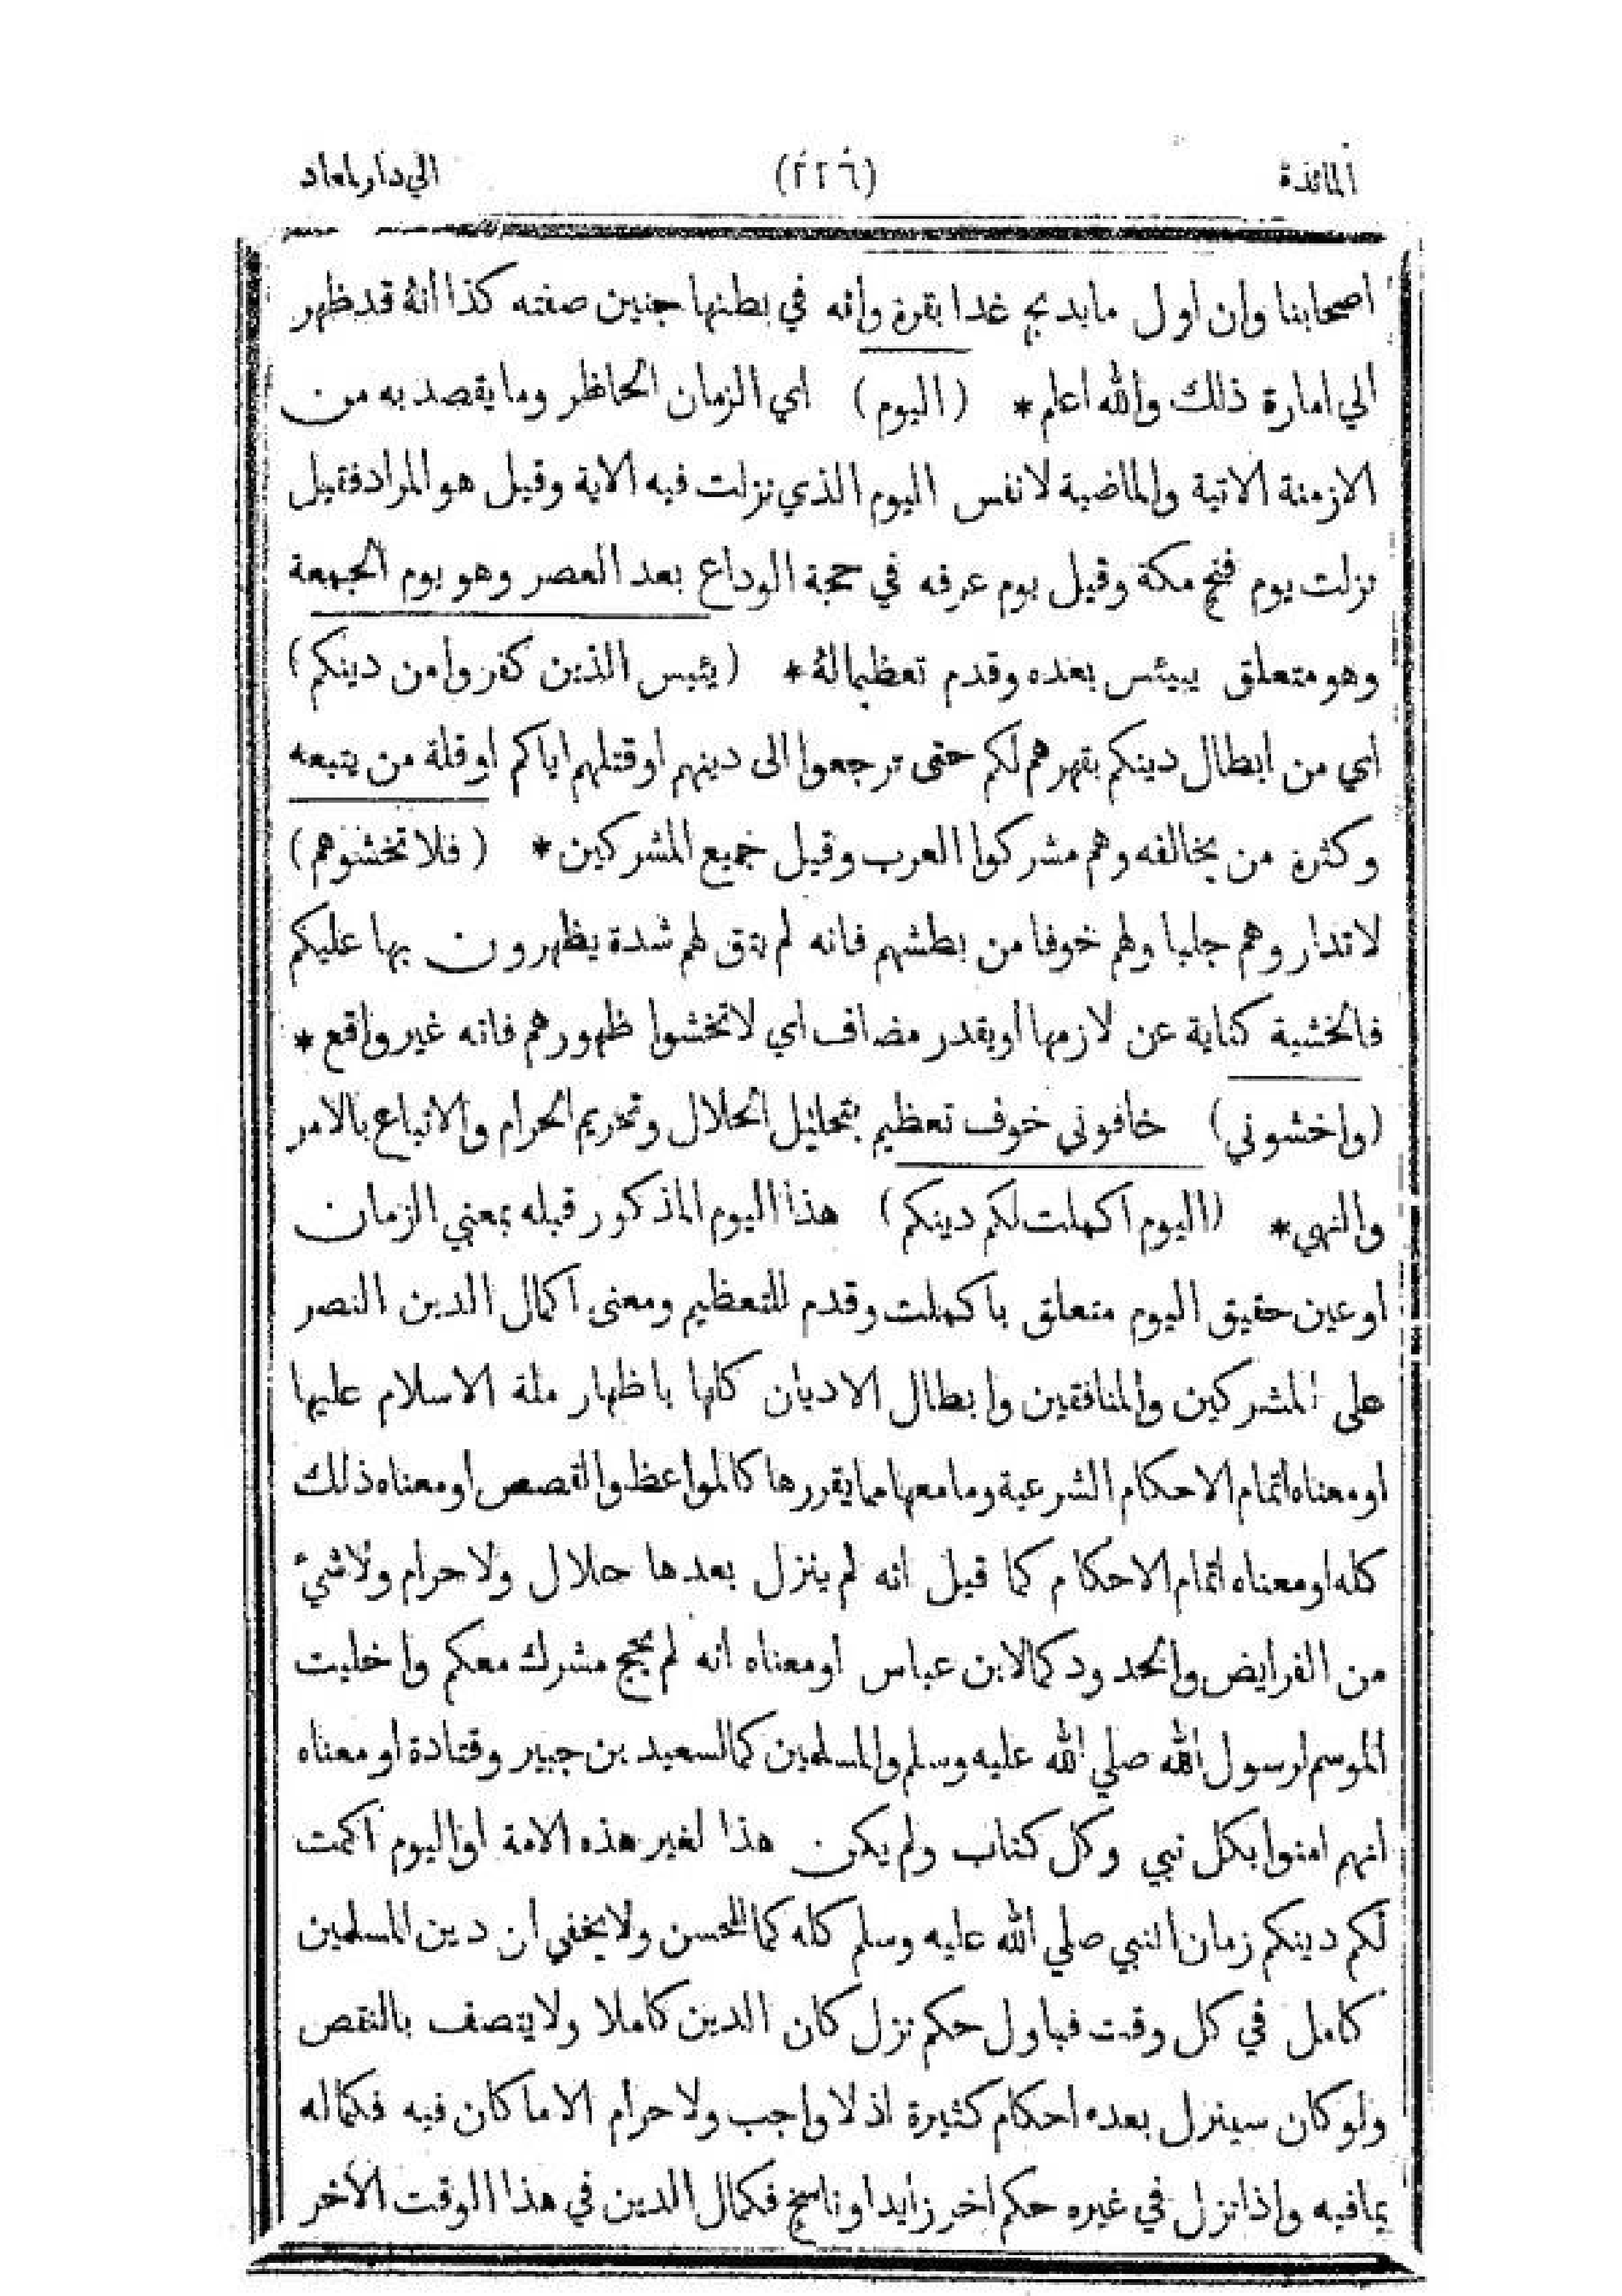 المائدة (٢٢٦) الي دار المعاد
اصحابنا وان اول ما يذبح غدا بقرة وانه في بطنها جنين صفته كذا انه قد ظهر
الي امارة ذلك والله اعلم * (اليوم) اي الزمان الحاظر وما يقصد به من
الازمنة الاتية والماضية لا نفس اليوم الذي نزلت فيه الاية وقيل هو المراد فقيل
نزلت يوم فتح مكة وقيل يوم عرفه في حجة الوداع بعد العصر وهو يوم الجمعة
وهو متعلق بيئس بعده وقدم تعظيما له * (يئيس الذين كفروا من دينكم)
اي من ابطال دينكم بقهرهم لكم حتى ترجعوا الى دينهم او قتلهم اياكم او قلة من يتبعه
وكثرة من يخالفه وهم مشركوا العرب وقيل جميع المشركين * (فلا تخشوهم)
لا تداروهم جلبا ولهم خوفا من بطشهم فانه لم تبق لهم شدة يظهرون بها عليكم
فالخشية كناية عن لازمها او يقدر مضاف اي لا تخشوا ظهورهم فانه غير واقع *
(واخشوني) خافوني خوف تعظيم بتحليل الحلال وتحريم الحرام والاتباع بالامر
والنهي * (اليوم اكملت لكم دينكم) هذا اليوم المذكور قبله بمعني الزمان
او عين حقيق اليوم متعلق باكملت وقدم للتعظيم ومعنى اكمال الدين النصر
على المشركين والمنافقين وابطال الاديان كلها باظهار ملة الاسلام عليها
او معناه اتمام الاحكام الشرعية وما معها مما يقررها كالمواعظ والقصص او معناه ذلك
كله او معناه اتمام الاحكام كما قيل انه لم ينزل بعدها حلال ولا حرام ولا شيئ
من الفرايض والحدود كما لابن عباس او معناه انه لم يحج مشرك معكم واخليت
الموسم لرسول الله صلي الله عليه وسلم والمسلمين كما لسعيد بن جبير وقتادة او معناه
انهم امنوا بكل نبي وكل كتاب ولم يكن هذا لغير هذه الامة او اليوم اكمت
لكم دينكم زمان النبي صلي الله عليه وسلم كله كما للحسن ولا يخفي ان دين المسلمين
كامل في كل وقت فباول حكم نزل كان الدين كاملا ولا يتصف بالنقص
ولو كان سينزل بعده احكام كثيرة اذ لا واجب ولا حرام الا ما كان فيه فكماله
بما فيه واذا نزل في غيره حكم اخر زايد او ناسخ فكمال الدين في هذا الوقت الأخر